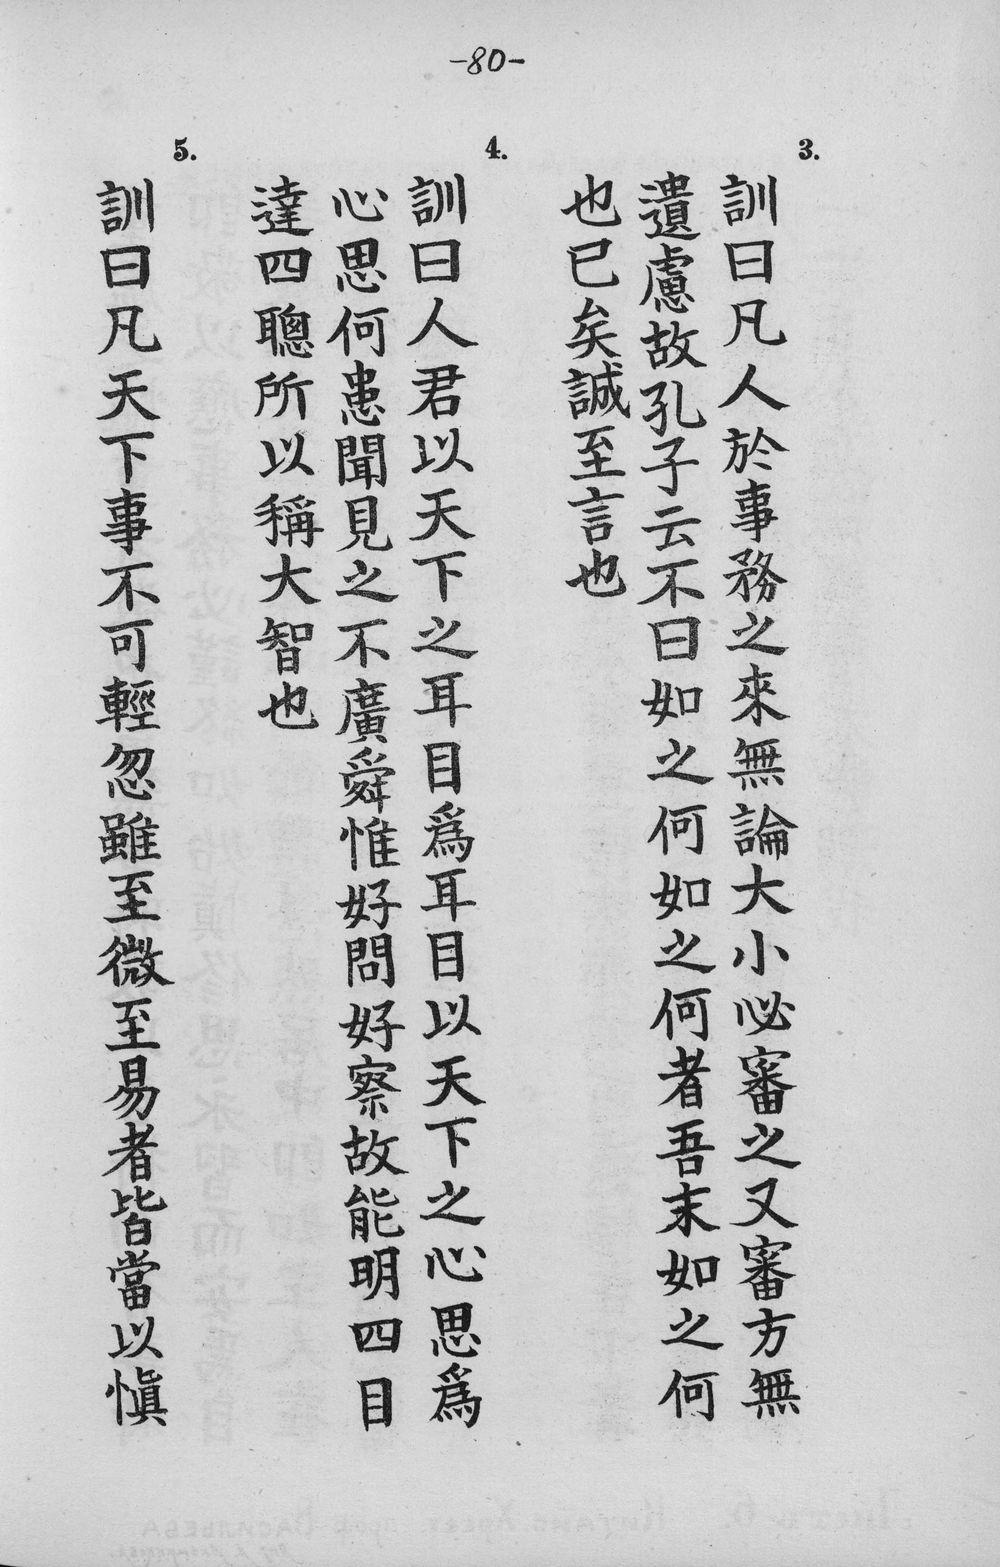 -80-
3.
訓曰凡人於事務之來無論大小必審之又審方無
遺慮故孔子云不曰如之何如之何者吾末如之何
也已矣誠至言也
4.
訓曰人君以天下之耳目爲耳目以天下之心思爲
心思何患聞見之不廣舜惟好問好察故能明四目
達四聰所以稱大智也
5.
訓曰凡天下事不可輕忽雖至微至易者皆當以愼